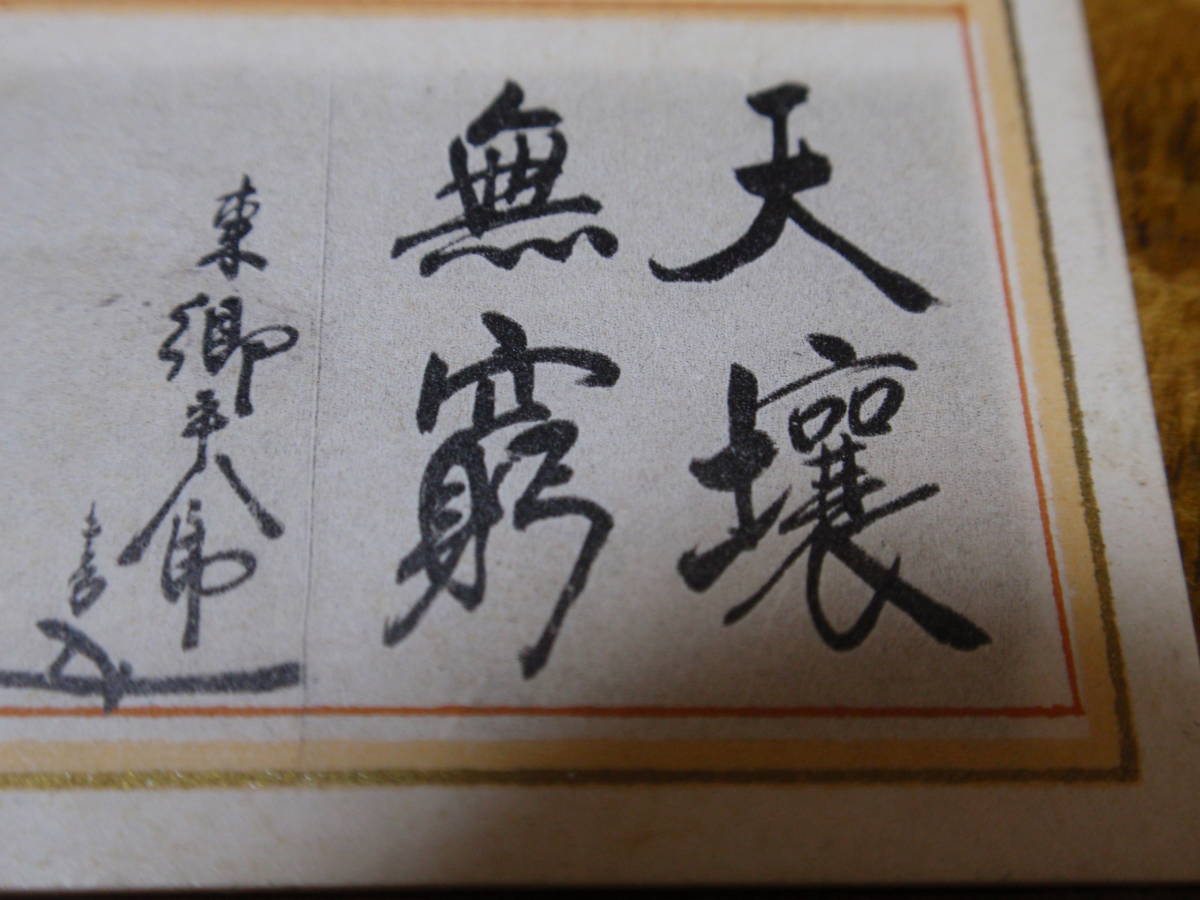 天壤
無窮
東郷平八郎
書